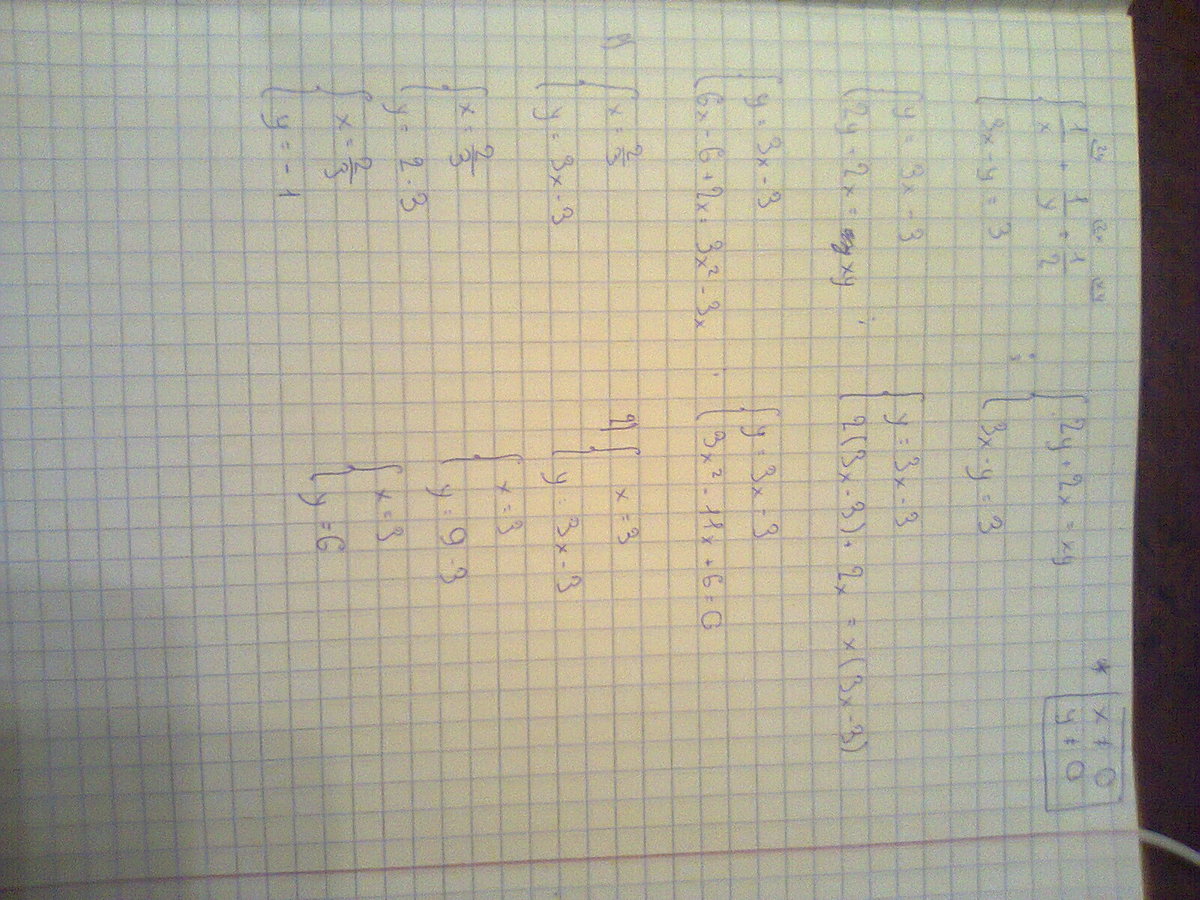 2y 2x xy
1/x + 1/y = 1/2
3x - y = 3
;
2y + 2x = xy
3x - y = 3
* x ≠ 0
y ≠ 0
y = 3x - 3
2y + 2x = xy
;
y = 3x - 3
2(3x - 3) + 2x = x(3x - 3)
y = 3x - 3
6x - 6 + 2x = 3x² - 3x
;
y = 3x - 3
3x² - 11x + 6 = 0
1) x = 2/3
y = 3x - 3
x = 2/3
y = 2 - 3
x = 2/3
y = -1
2) x = 3
y = 3x - 3
x = 3
y = 9 - 3
x = 3
y = 6